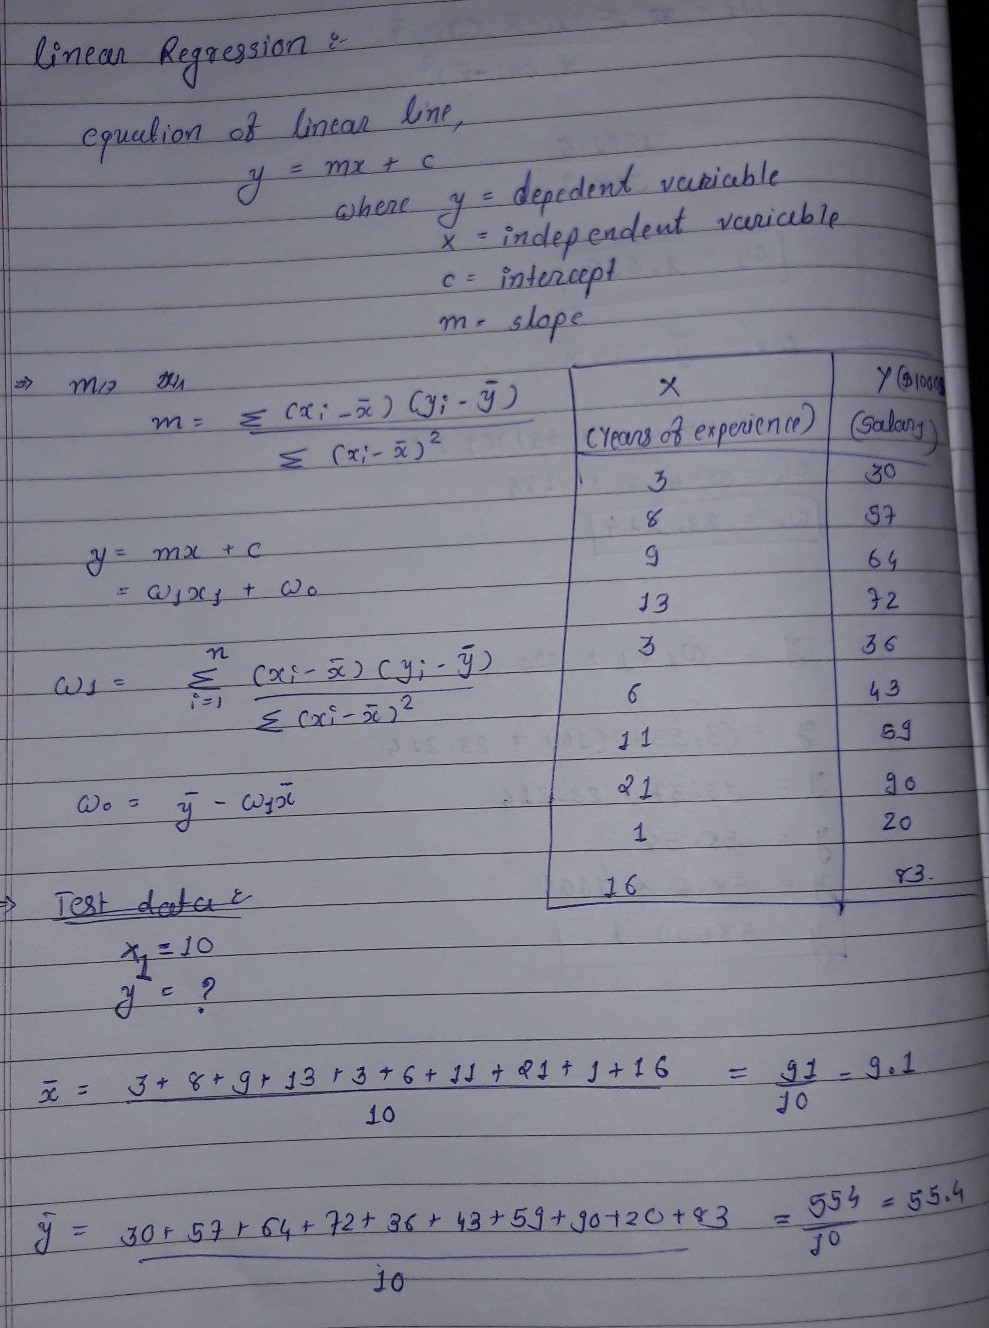 linear Regression :-
equation of linear line,
y = mx + c
where y = depedent variable
x = independent variable
c = intercept
m = slope
⇒ m⇒
m = Σ (xi - x̄) (yi - ȳ) / Σ (xi - x̄)²
y = mx + c
= ω1x1 + ω0
ω1 = Σ i=1 n (xi - x̄) (yi - ȳ) / Σ (xi - x̄)²
ω0 = ȳ - ω1x̄
X Y ($1000)
(Years of experience) (Salary)
3 30
8 57
9 64
13 72
3 36
6 43
11 59
21 90
1 20
16 83.
⇒ Test data :-
x1 = 10
y = ?
x̄ = 3 + 8 + 9 + 13 + 3 + 6 + 11 + 21 + 1 + 16 / 10 = 91 / 10 = 9.1
ȳ = 30 + 57 + 64 + 72 + 36 + 43 + 59 + 90 + 20 + 83 / 10 = 554 / 10 = 55.4